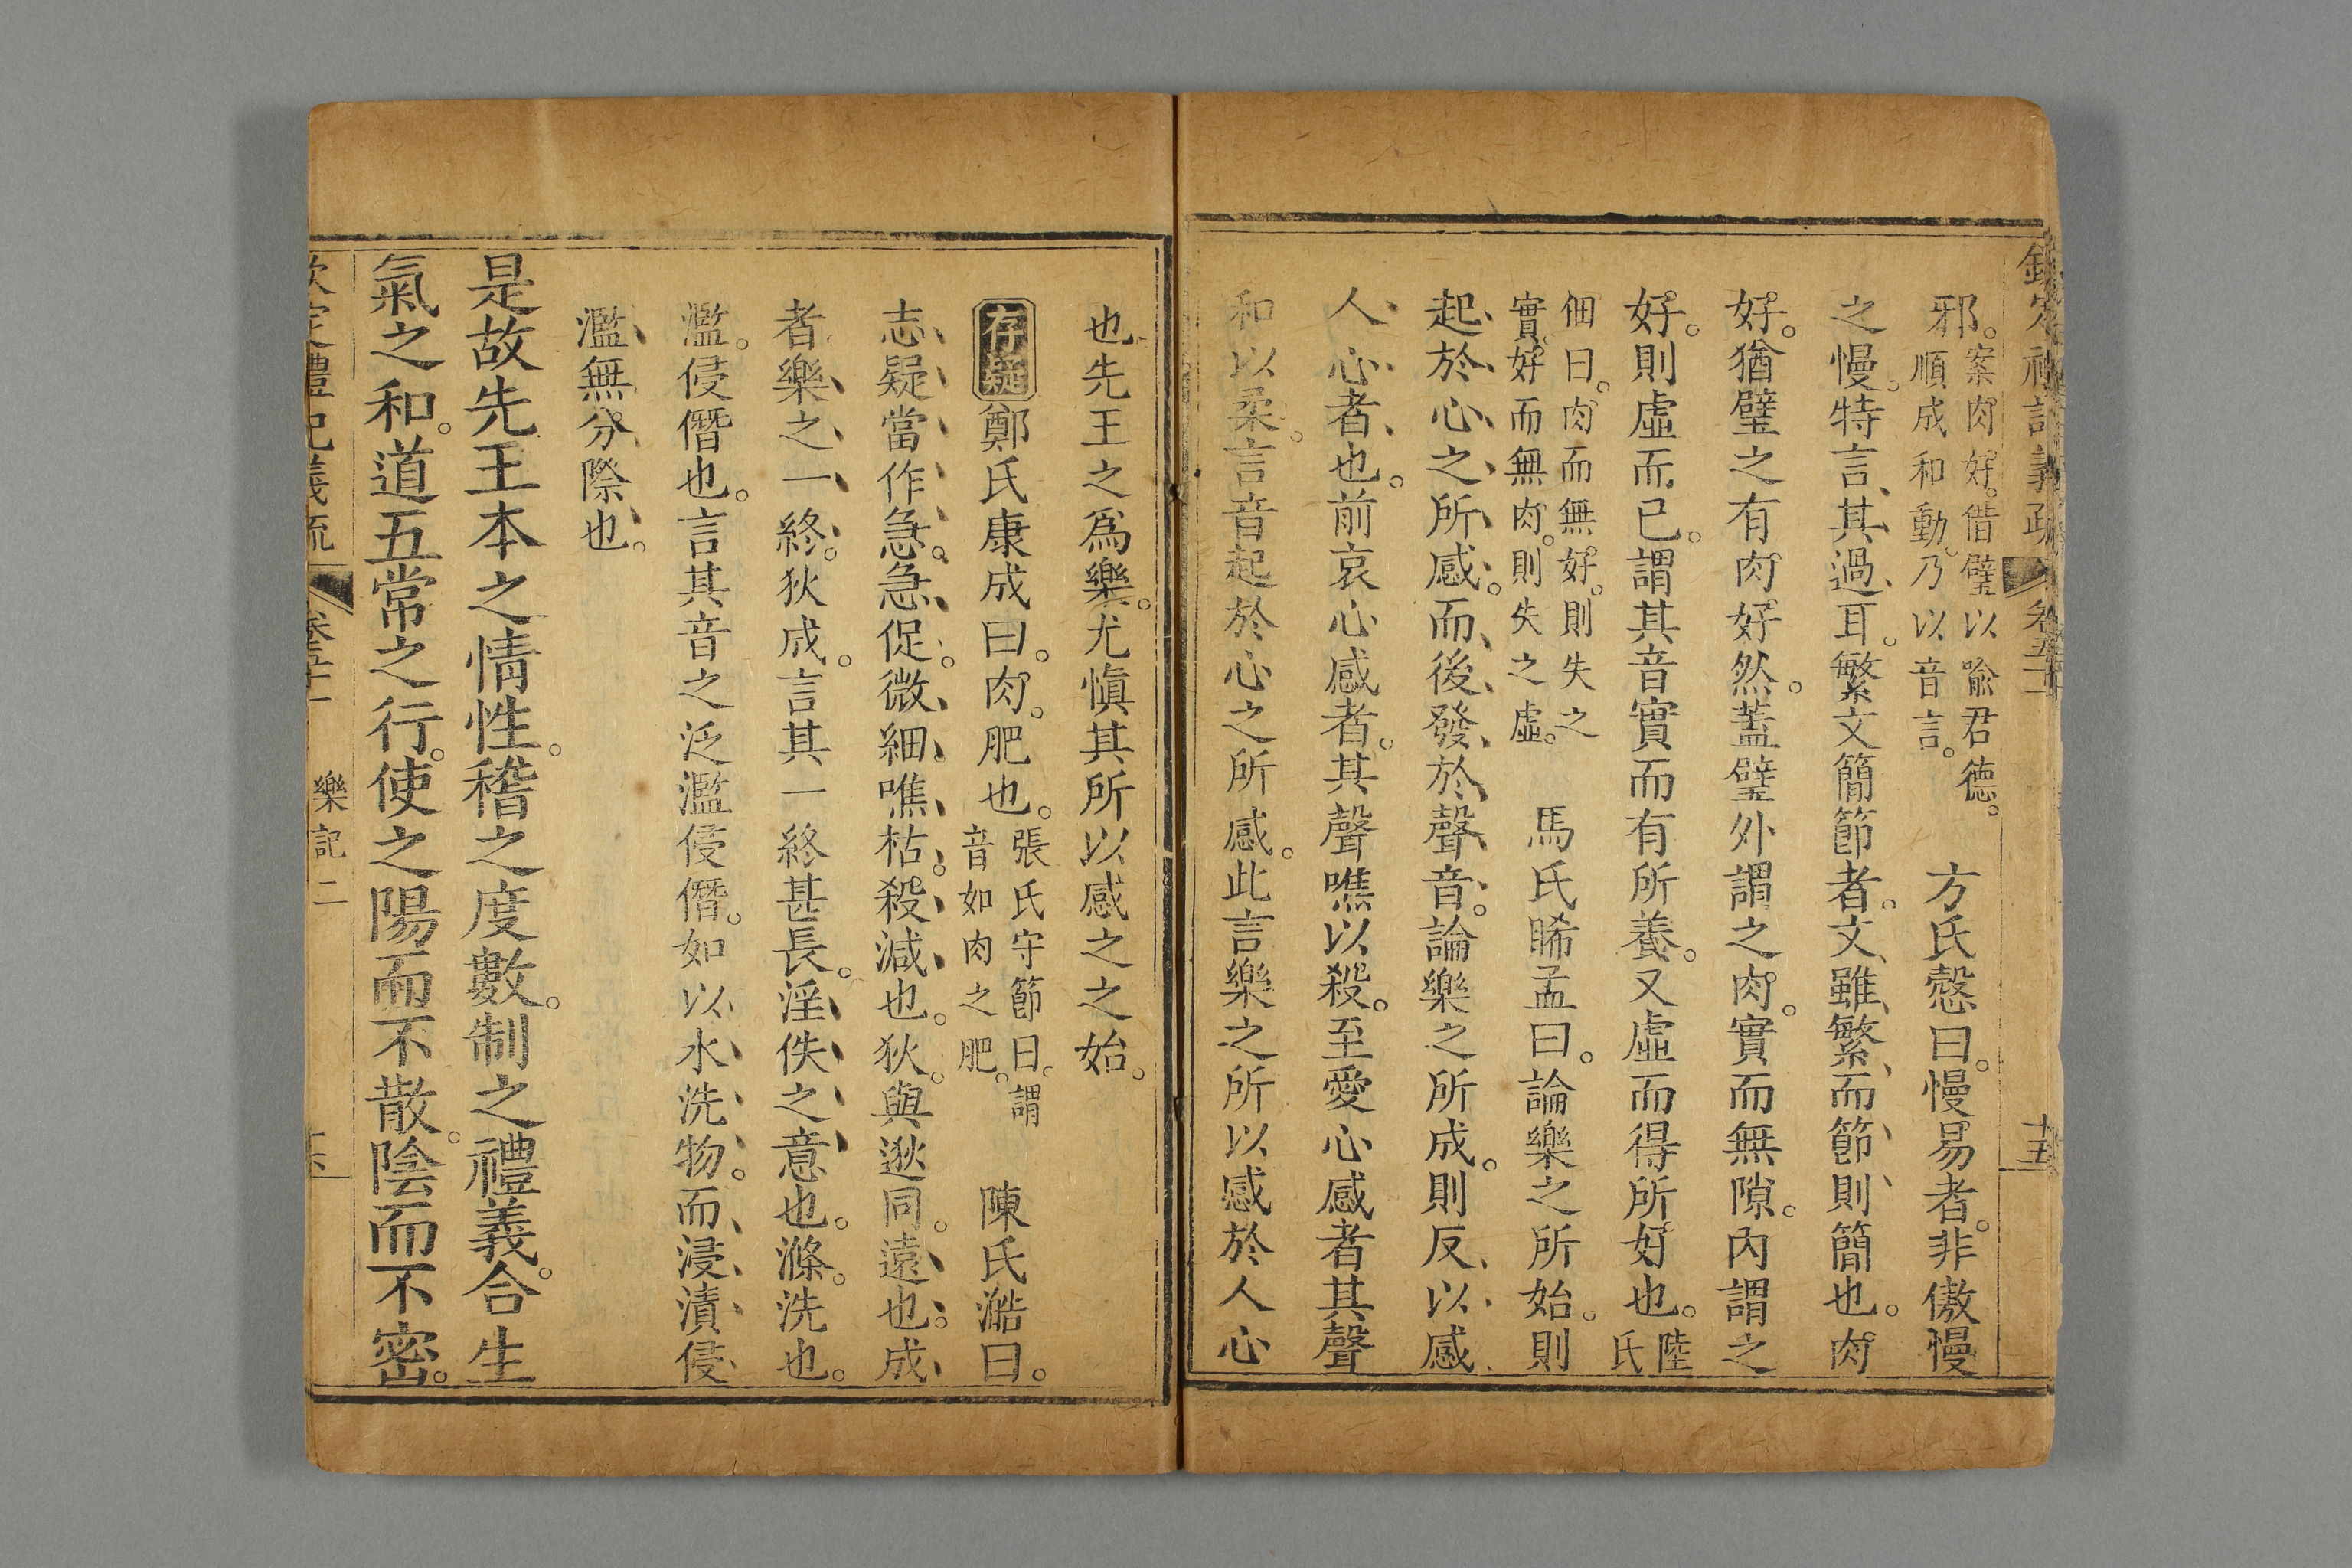 欽定禮記義疏 卷五十一 十五
邪。案肉好。借璧以喻君德。順成和動。乃以音言。 方氏慤曰。慢易者。非傲慢
之慢。特言其過耳。繁文簡節者。文雖繁而節則簡也。肉
好。猶璧之有肉好然。蓋璧外謂之肉。實而無隙。內謂之
好。則虛而已。謂其音實而有所養。又虛而得所好也。陸氏
佃曰。肉而無好。則失之實。好而無肉。則失之虛。 馬氏睎孟曰。論樂之所始。則
起於心之所感。而後發於聲音。論樂之所成。則反以感
人心者也。前哀心感者。其聲噍以殺。至愛心感者其聲
和以柔。言音起於心之所感。此言樂之所以感於人心
也。先王之為樂。尤愼其所以感之之始。
存疑 鄭氏康成曰。肉。肥也。張氏守節曰。謂音如肉之肥。 陳氏澔曰。
志疑當作急。急促。微細。噍枯。殺減也。狄與逖同。遠也。成
者樂之一終。狄成。言其一終甚長。淫佚之意也。滌。洗也。
濫。侵僭也。言其音之泛濫侵僭。如以水洗物。而浸漬侵
濫無分際也。
是故先王本之情性。稽之度數。制之禮義。合生
氣之和。道五常之行。使之陽而不散。陰而不密。
欽定禮記義疏 卷五十一 樂記二